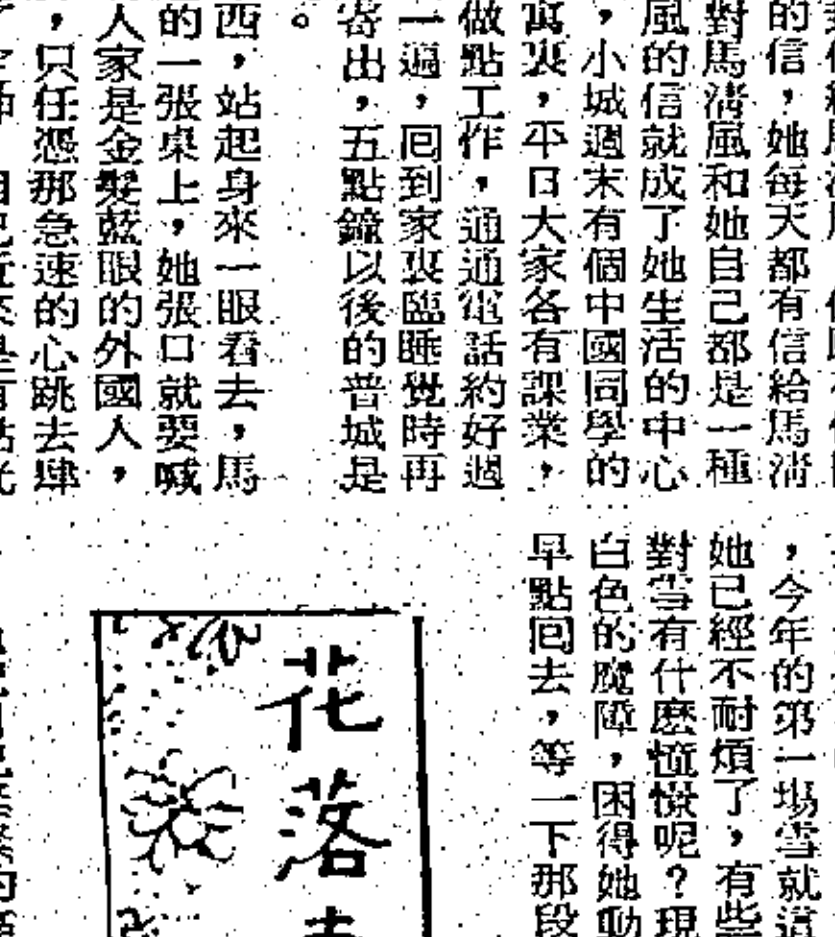 的信，她每天都有信給馬清
對馬清風和她自己都是一種
風的信就成了她生活的中心
，小城週末有個中國同學的
寓裏，平日大家各有課業，
做點工作，通通電話約好週
一遍，回到家裏臨睡覺時再
寄出，五點鐘以後的普城是
。
西，站起身來一眼看去，馬
的一張桌上，她張口就要喊
人家是金髮藍眼的外國人，
，只任憑那急速的心跳去肆
，今年的第一場雪就這
她已經不耐煩了，有些
對雪有什麽憧憬呢？現
白色的魔障，困得她動
早點回去，等一下那段
花落